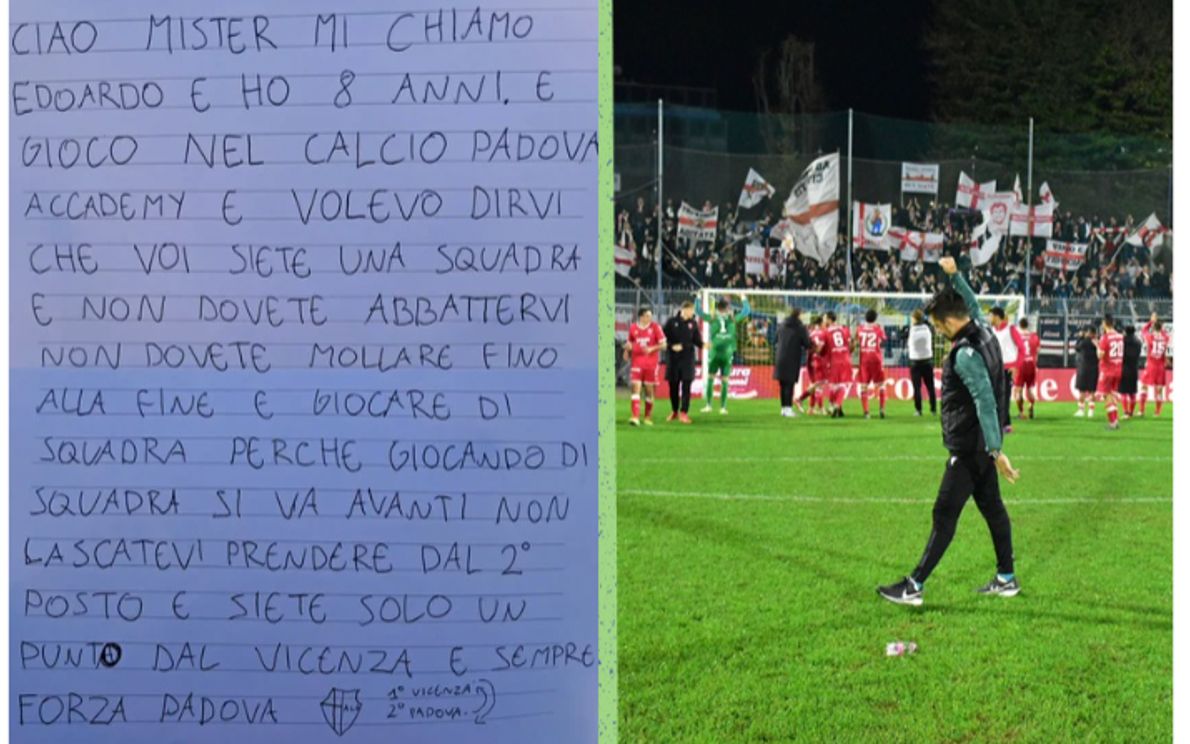 CIAO MISTER MI CHIAMO
EDOARDO E HO 8 ANNI. E
GIOCO NEL CALCIO PADOVA
ACCADEMY E VOLEVO DIRVI
CHE VOI SIETE UNA SQUADRA
E NON DOVETE ABBATTERVI
NON DOVETE MOLLARE FINO
ALLA FINE E GIOCARE DI
SQUADRA PERCHE GIOCANDO DI
SQUADRA SI VA AVANTI NON
LASCATEVI PRENDERE DAL 2°
POSTO E SIETE SOLO UN
PUNTO DAL VICENZA E SEMPRE
FORZA PADOVA
1° VICENZA
2° PADOVA.
1
6
72
20
15